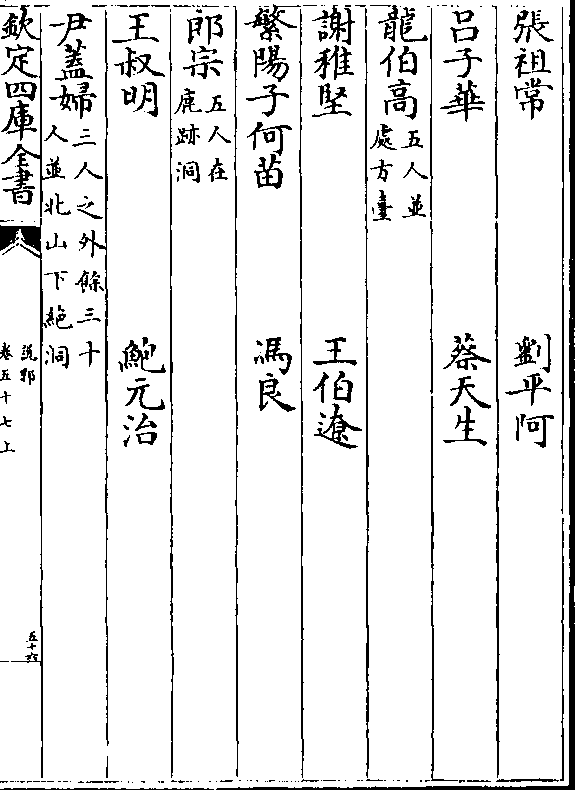 張祖常　劉平阿
呂子華　蔡天生
龍伯高五人並處方臺
謝稚堅　王伯遼
繁陽子何苗　馮良
郎宗五人在鹿跡洞
王叔明　鮑元治
尹蓋婦三人之外餘三十人並北山下絕洞
欽定四庫全書　說郛卷五十七上　五十六